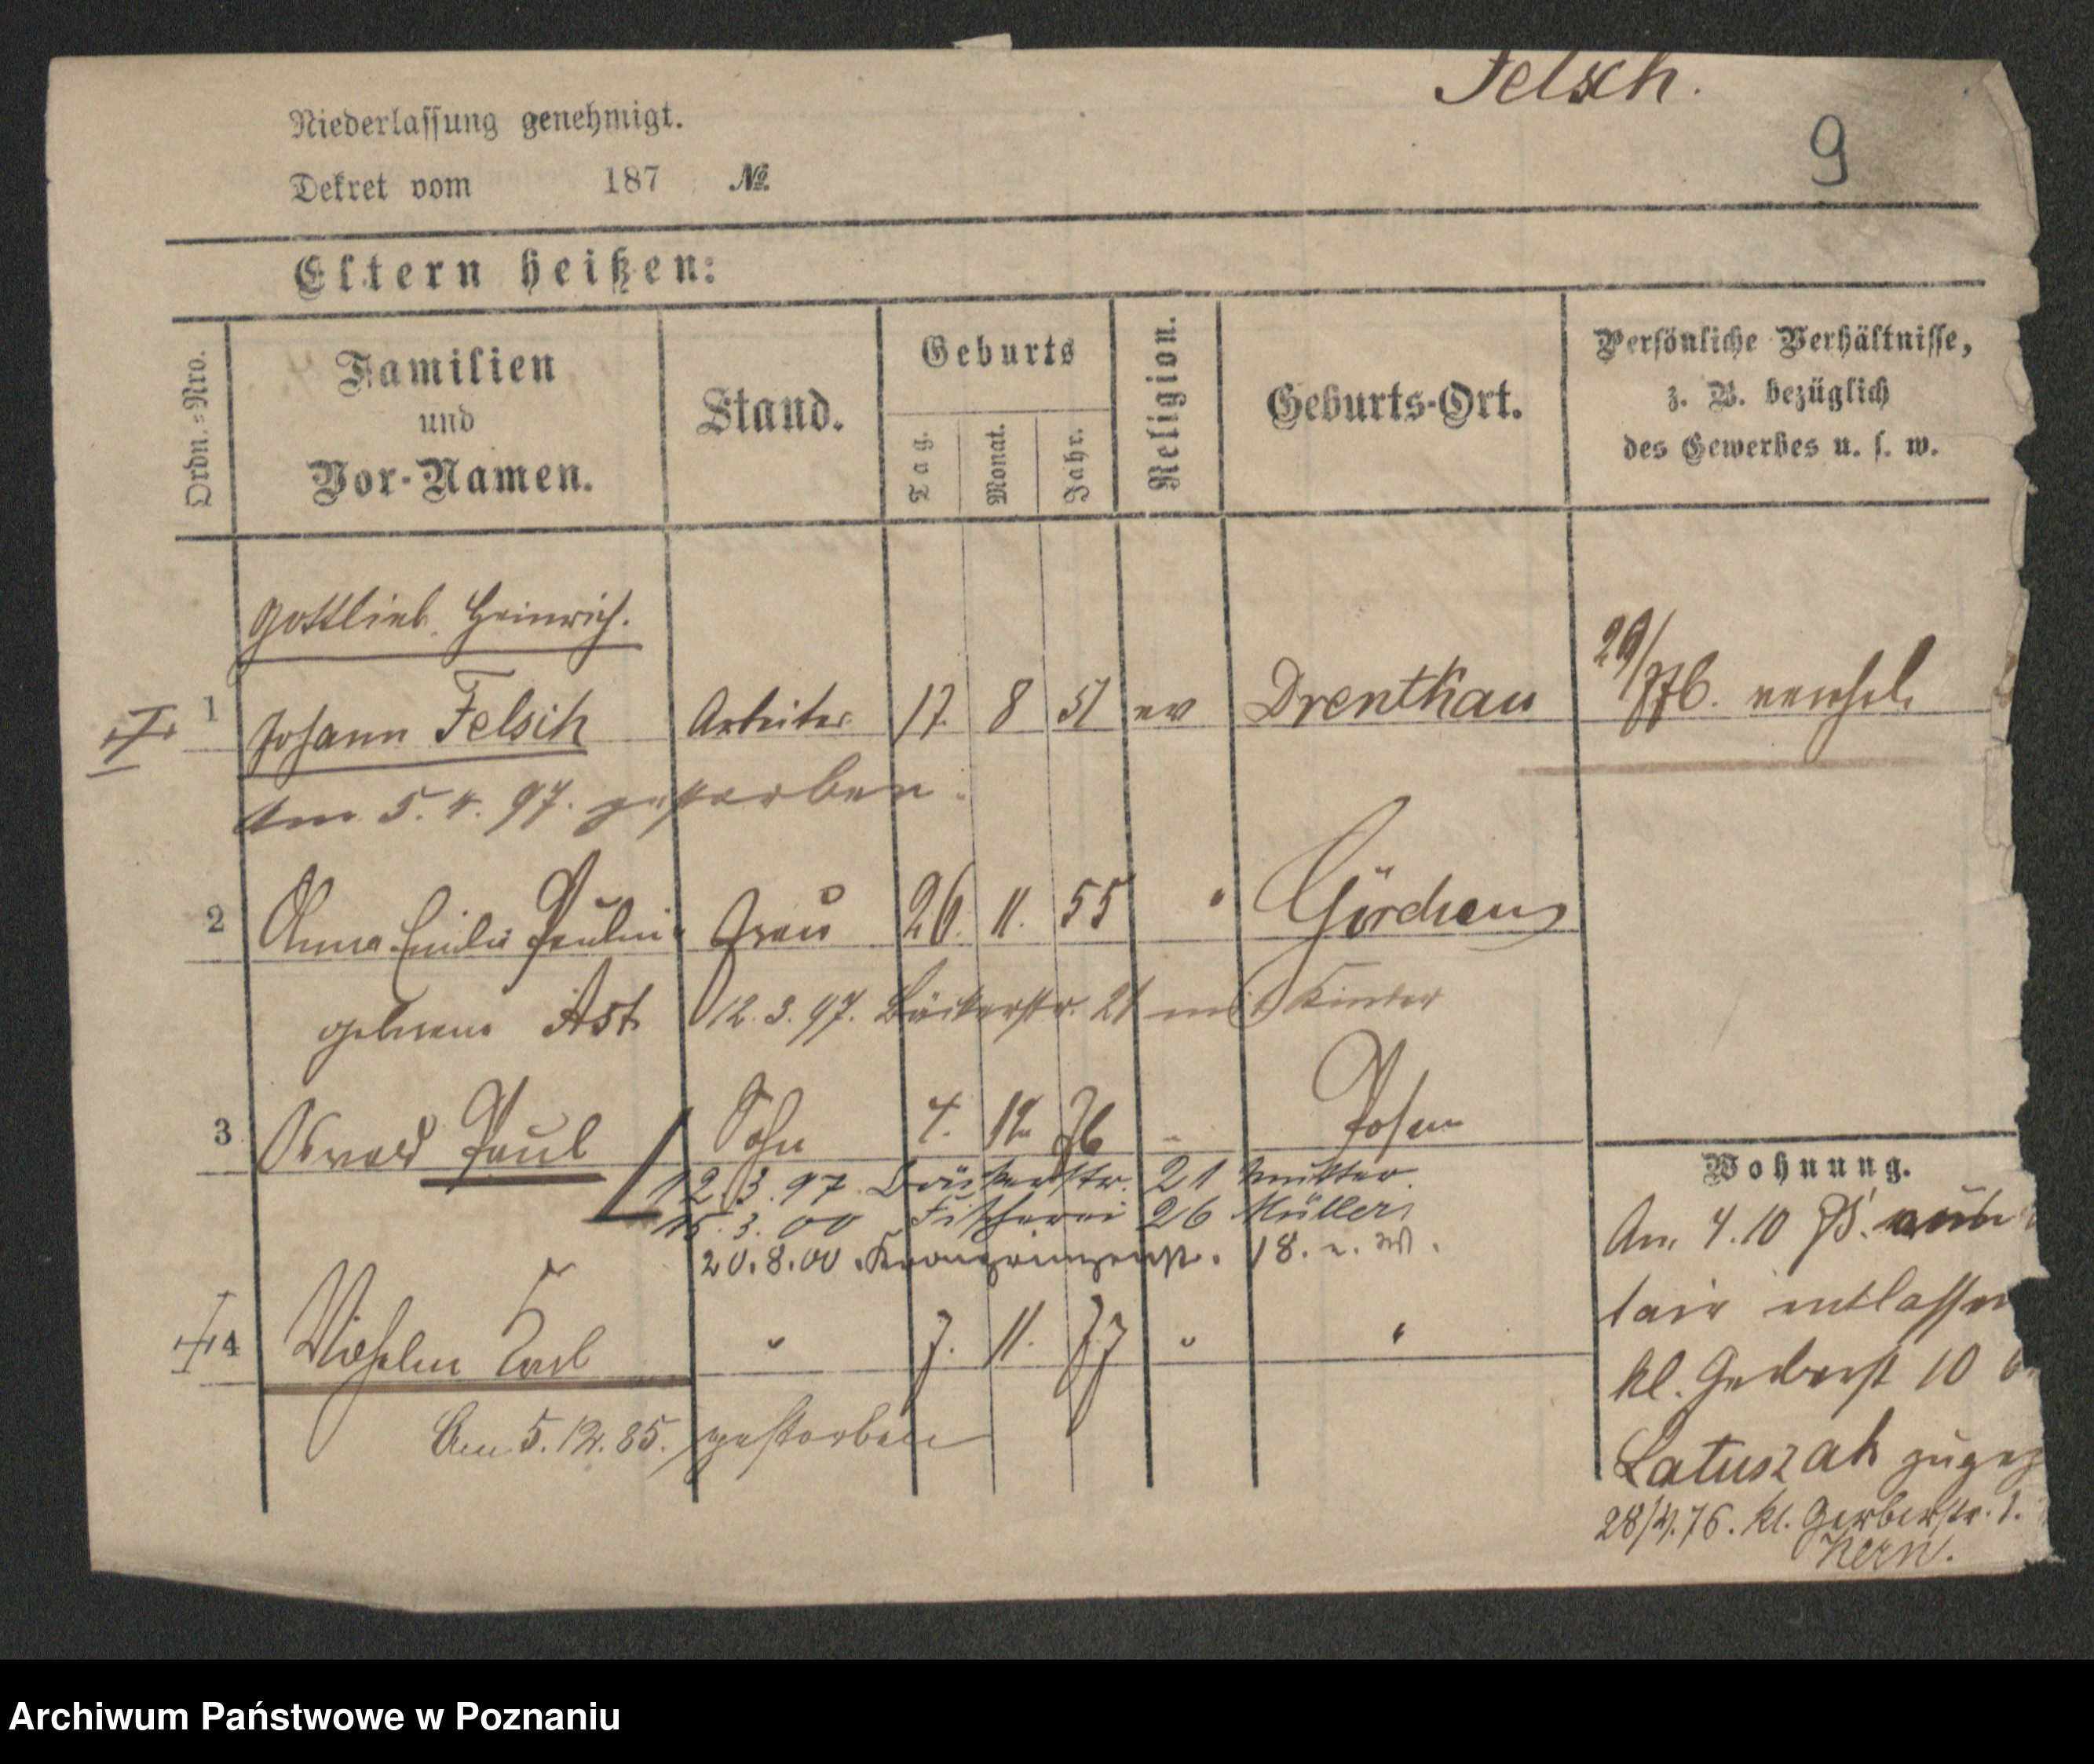 Felsch.
9
Niederlassung genehmigt.
Dekret vom 187 №
Eltern heißen:
Ordn.=Nro.
Familien
und
Vor-Namen.
Stand.
Geburts
Tag.
Monat.
Jahr.
Religion.
Geburts-Ort.
Persönliche Verhältnisse,
z. B. bezüglich
des Gewerbes u. s. w.
Gottlieb Heinrich.
1 Johann Felsch Arbeiter 17. 8 51 ev Drentkau
Am 5. 4. 97. gestorben.
2 Anna Emilie Pauline Frau 26. 11. 55 " Görchen
geborene Ast 12. 3. 97. Bäckerstr. 21 mit Kinder
3 Oswald Paul Sohn 7. 12. 76 Posen
12. 3. 97 Bäckerstr. 21 Mutter.
15. 3. 00 Fischerei 26 Müller
20. 8. 00. Kronprinzenstr. 18.
4 Wilhelm Carl " 7. 11. 77 " "
Am 5. 12. 85. gestorben
Wohnung.
Am 4. 10 75.
entlassen
kl. Gerberst 10
Latuszak
28/4. 76. kl. Gerberstr. 1.
Kern.
Archiwum Państwowe w Poznaniu